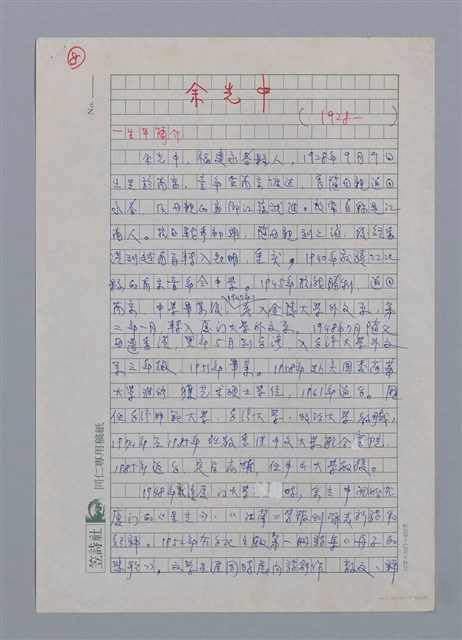 ⑧
No.
余光中
(1928— )
一生平簡介
余光中，福建永春縣人，1928年9月9日
出生於南京，童年在南京渡過，曾隨母親返回
永春，及母親的家鄉江蘇武進。故常自稱是江
南人。抗日戰爭初期，隨母親到上海，後經香
港到越南再轉入昆明，重慶。1940年就讀江北
縣的南京青年會中學。1945年抗戰勝利，返回
南京，中學畢業後，1947年入金陵大學外文系，第
二年二月，轉入厦门大學外文系。1948年7月隨父
母遷香港，翌年5月到台灣，入台灣大學外文
系三年級，1951年畢業。1958年赴美國愛荷華
大學進修，獲藝術碩士學位，1961年返台。歷
任台灣師範大學、台灣大學、政治大學教職，
1974年至1985年任教香港中文大學聯合書院，
1985年返台，定居高雄，任中山大學教授。
1948年就讀厦门大學時，余光中開始在
厦门的《星光》、《江聲》等報刊發表新詩和
短評。1952年在台北出版第一册詩集《舟子的
悲歌》，文學生展同時展向詩創作、散文、評
笠詩社
同仁專用稿紙